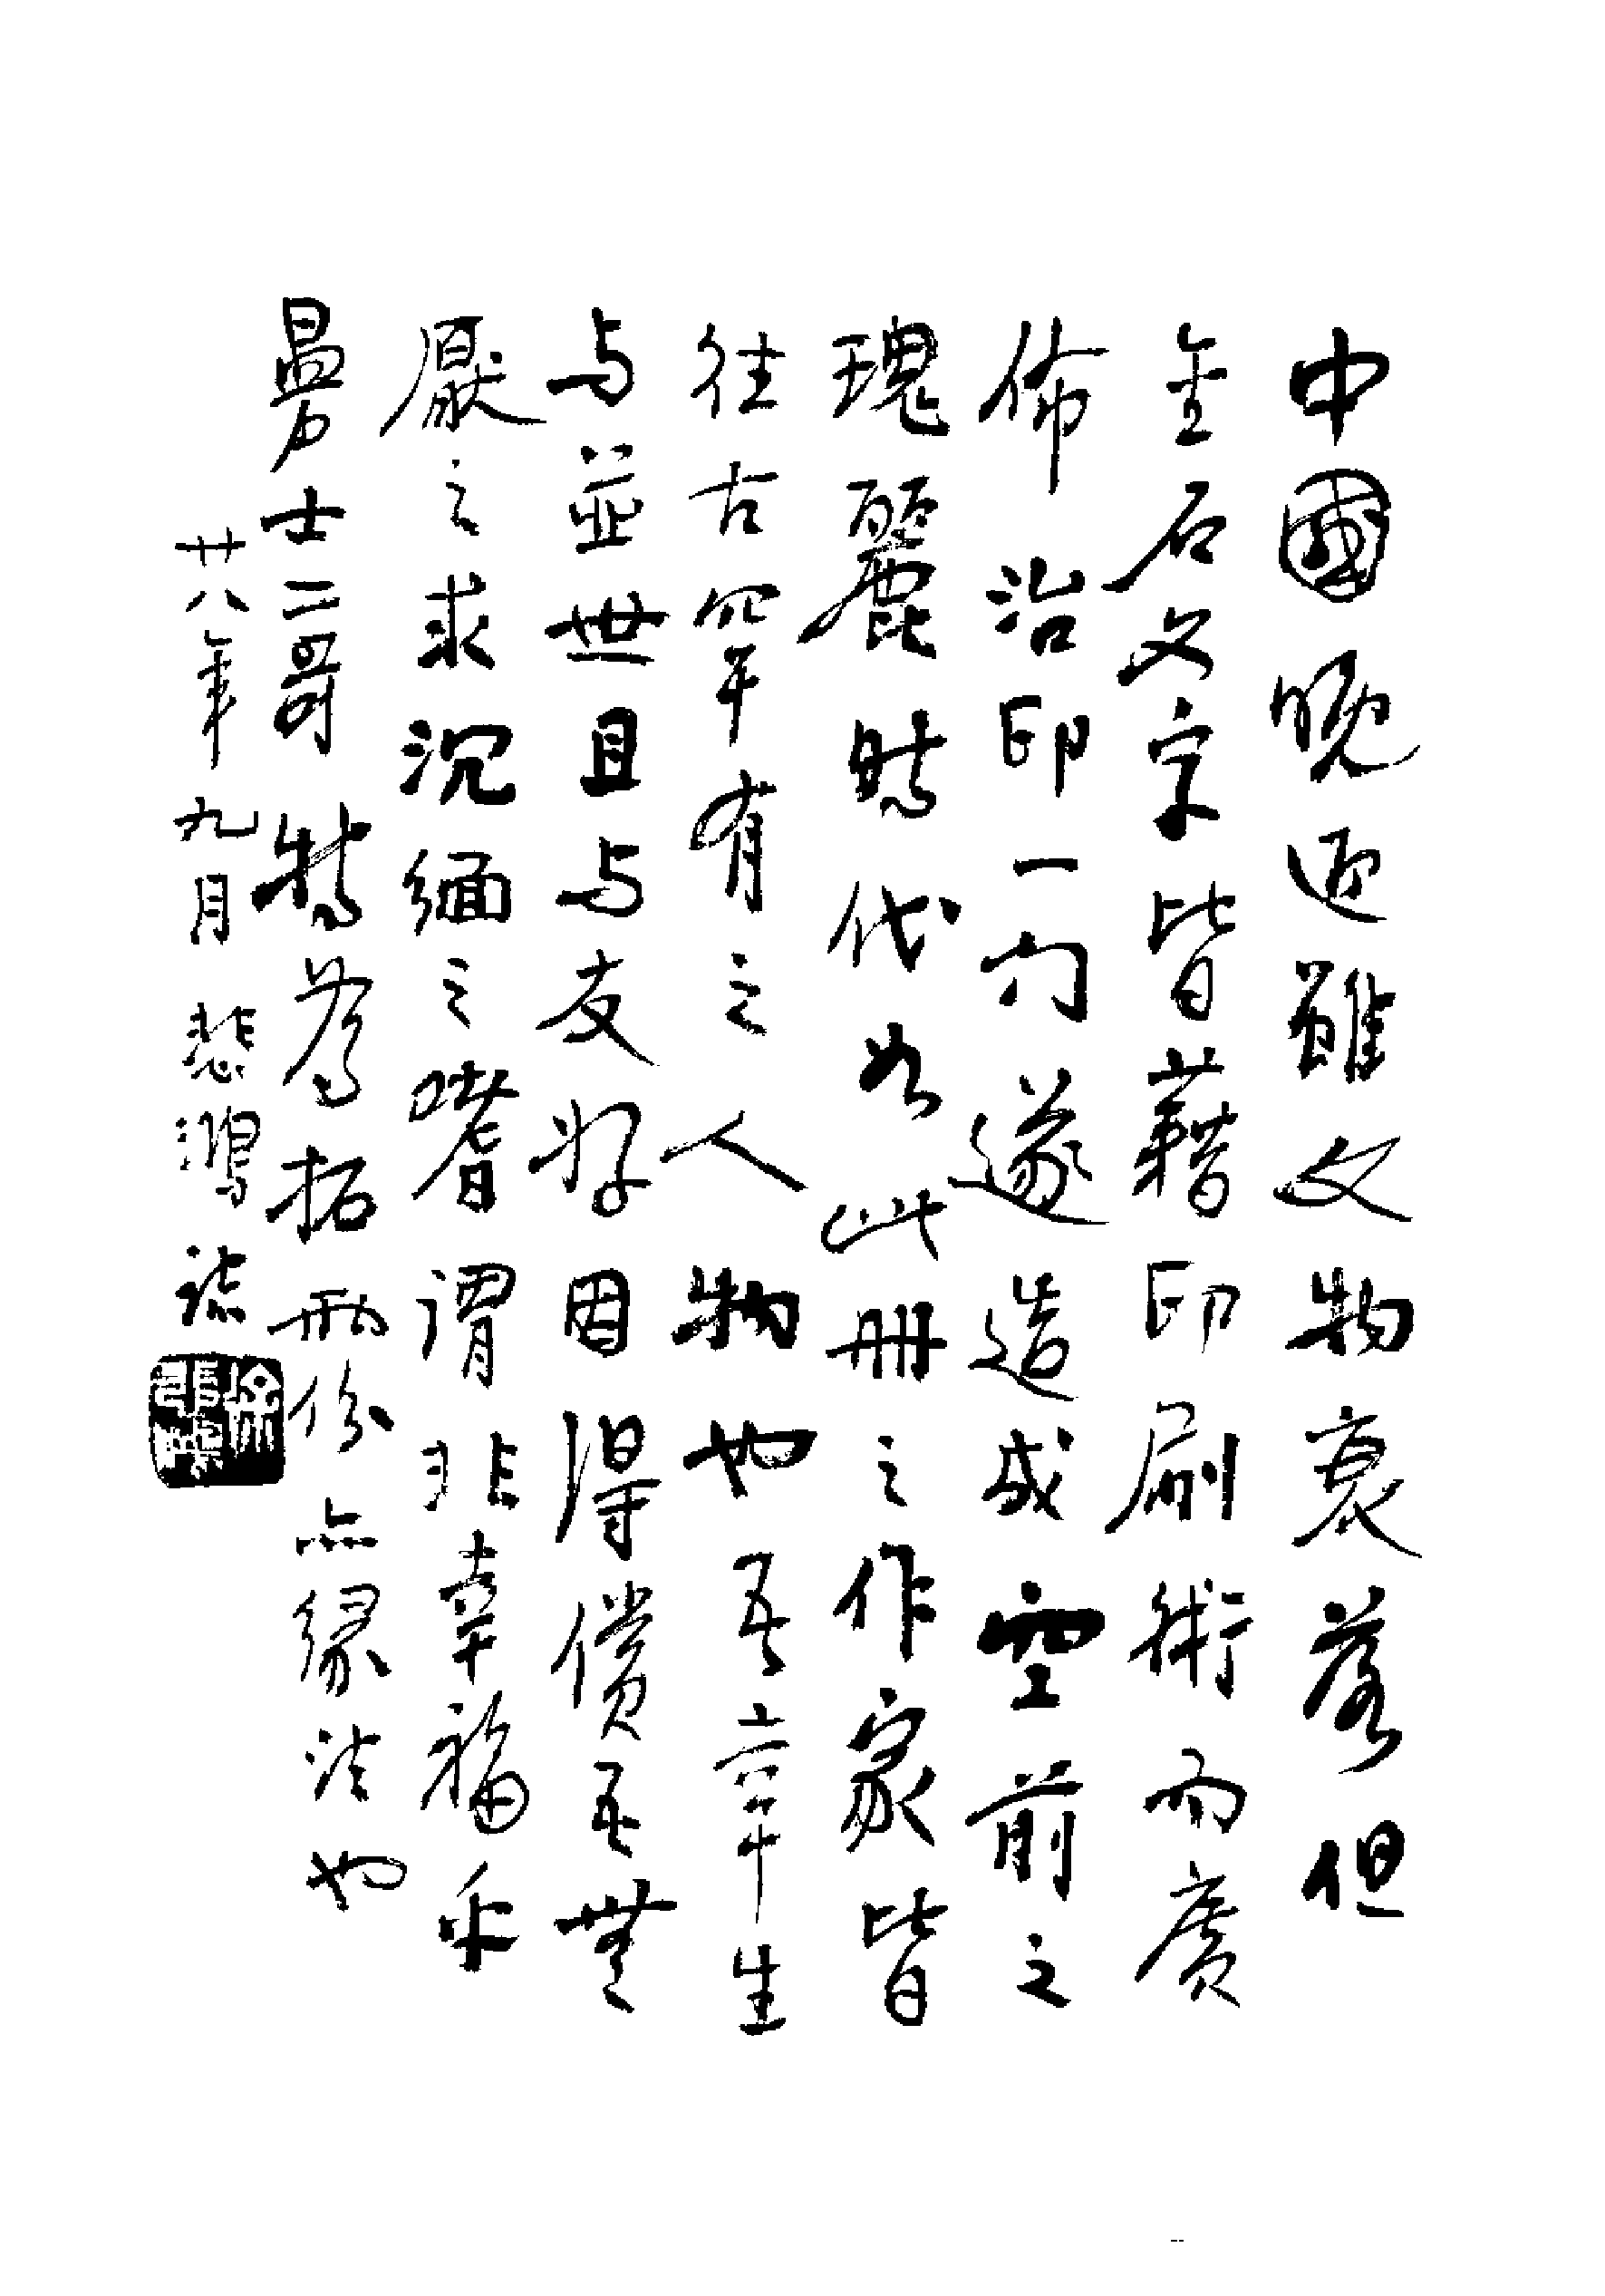 中國晚近雖文物衰落但
金石文字皆藉印刷術而廣
佈治印一門遂造成空前之
瑰麗時代如此冊之作家皆
往古罕有之人物也吾幸生
与並世且与友好因得償吾無
厭之求沉緬之嗜謂非幸福乎
勇士二哥特為拓兩份亦緣法也
廿八年九月悲鴻誌
徐悲鴻